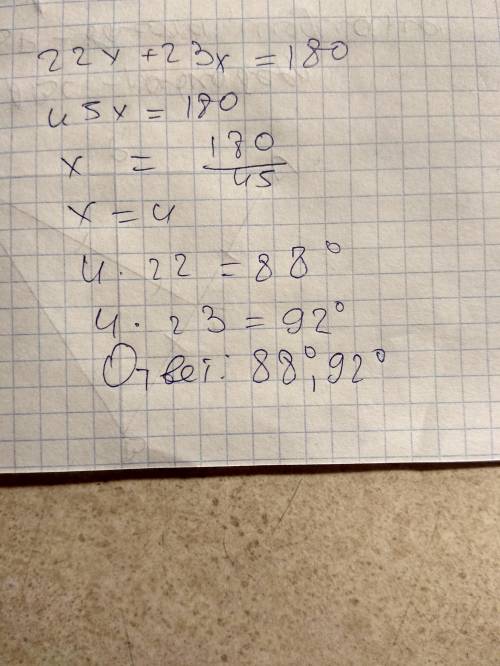 22x + 23x = 180
45x = 180
x = 180/45
x = 4
4 · 22 = 88°
4 · 23 = 92°
Ответ: 88°, 92°